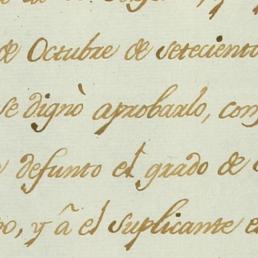 de Octubre de setecient
se dignò aprobarlo, con
defunto el grado de
po, y â el suplicante e